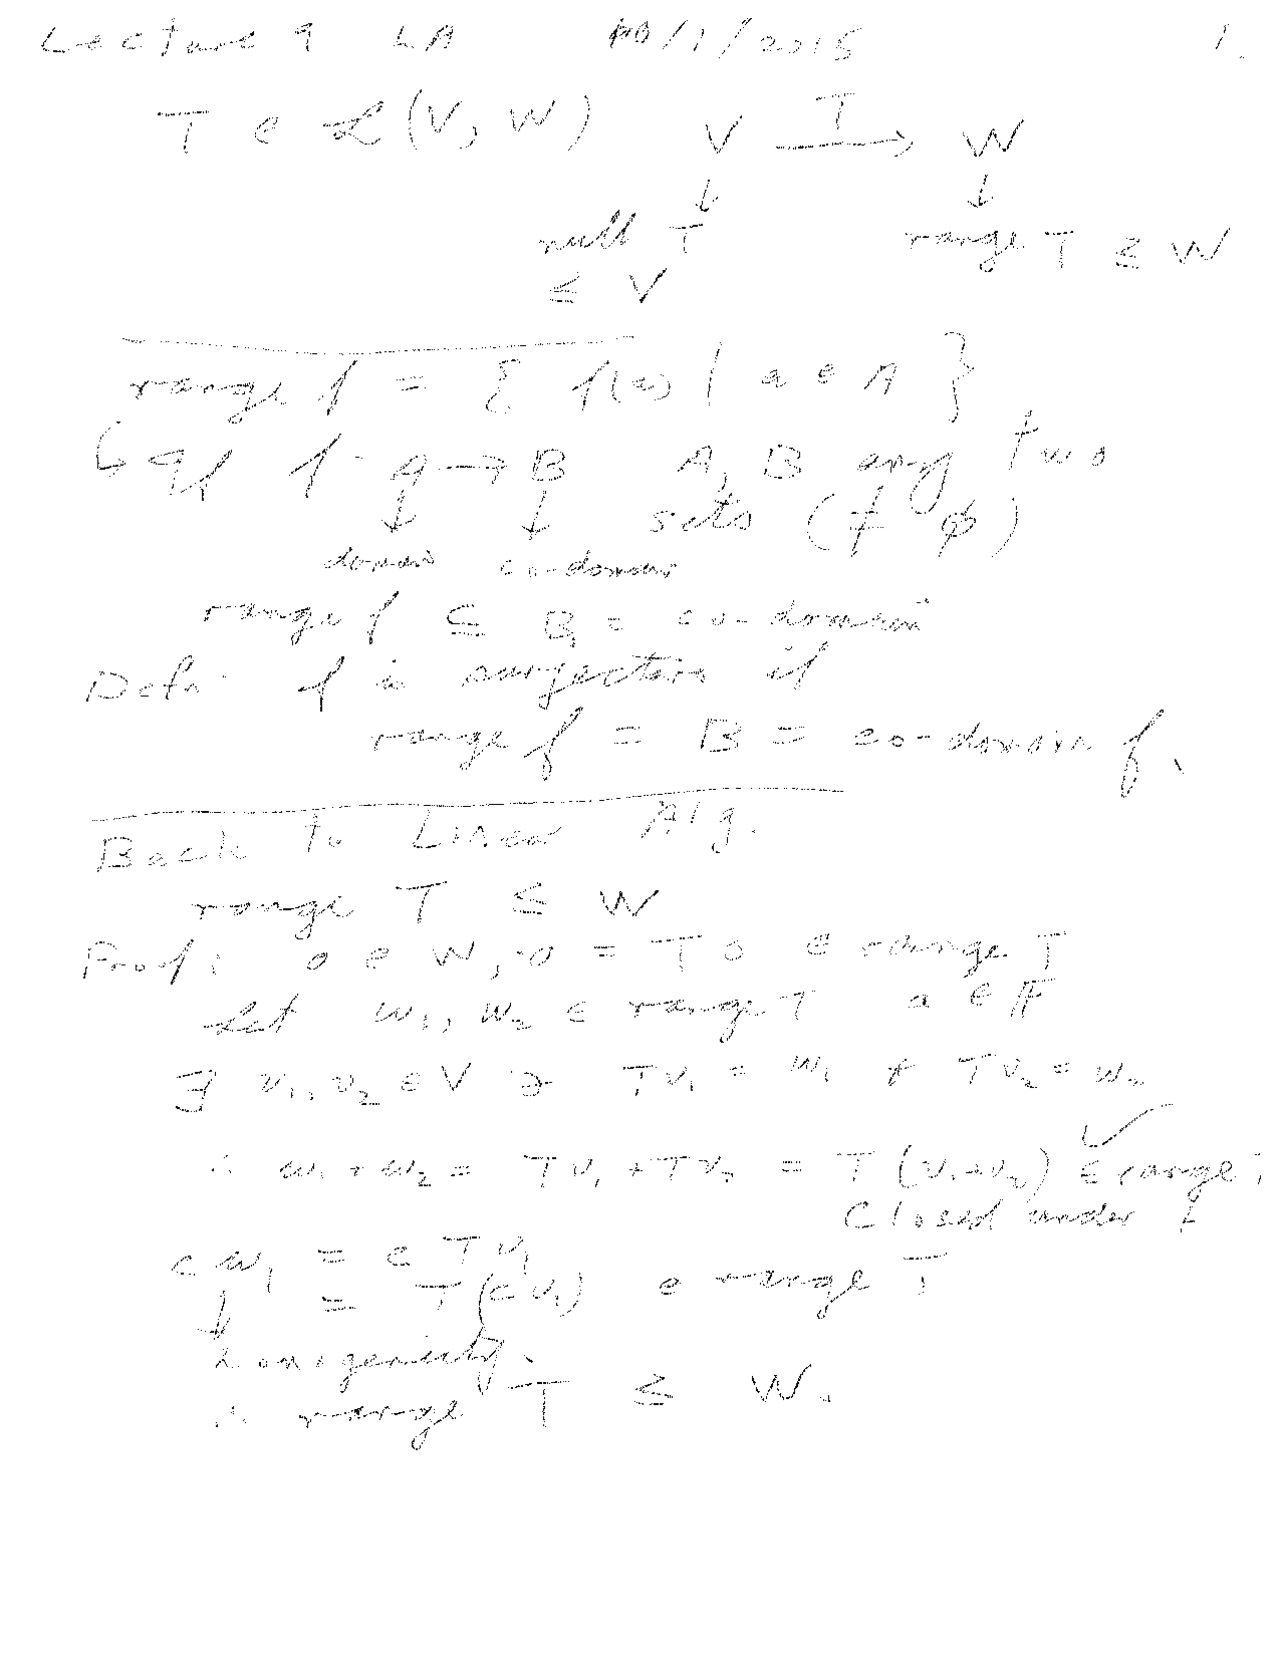 Lecture 9 LA 10/1/2015 1.
T ∈ ℒ(V, W) V →T W
↓ ↓
null T range T ≤ W
≤ V
range f = { f(a) | a ∈ A }
↳ of f: A → B A, B any two
↓ ↓ sets (≠ ø)
domain co-domain
range f ⊆ B = co-domain
Defn: f is surjective if
range f = B = co-domain f.
Back to Linear Alg.
range T ≤ W
Proof: 0 ∈ W, 0 = T0 ∈ range T
Let w₁, w₂ ∈ range T a ∈ F
∃ v₁, v₂ ∈ V ∋ Tv₁ = w₁ & Tv₂ = w₂
∴ w₁ + w₂ = Tv₁ + Tv₂ = T(v₁+v₂) ∈ range T ✓
Closed under +
c w₁ = c Tv₁
↓ = T(cv₁) ∈ range T
homogeniety.
∴ range T ≤ W.